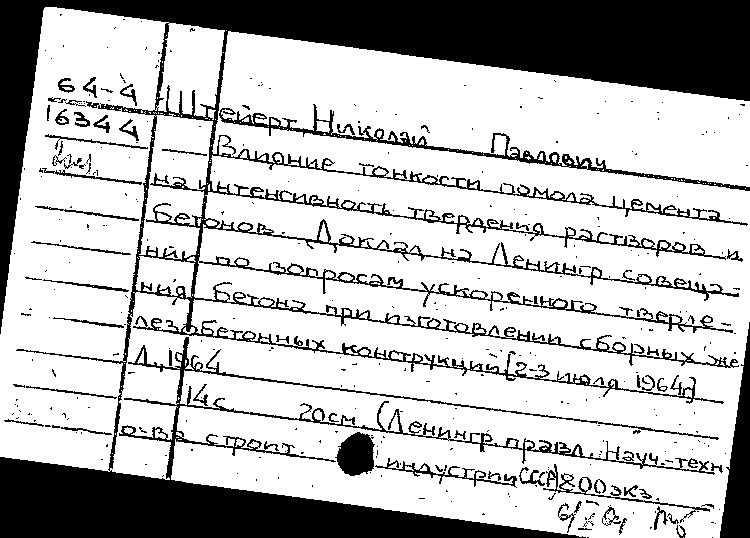 64-4
16344
Штейерт, Николай Павлович
Влияние тонкости помола цемента
на интенсивность твердения растворов и
бетонов. Доклад на Ленингр. совеща-
нии по вопросам ускоренного тверде-
ния бетона при изготовлении сборных же-
лезобетонных конструкций [2-3 июля 1964г]
Л., 1964.
14с. 20см. (Ленингр. правл. Науч.-техн.
о-ва строит. индустрии СССР) 800 экз.